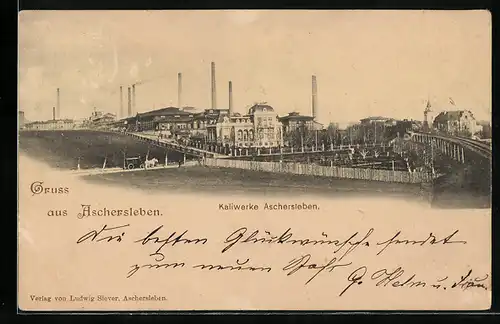 Gruss
aus Aschersleben.
Kaliwerke Aschersleben.
Die besten Glückwünsche sendet
zum neuen Jahr
G. Helm u. Frau
Verlag von Ludwig Siever, Aschersleben.